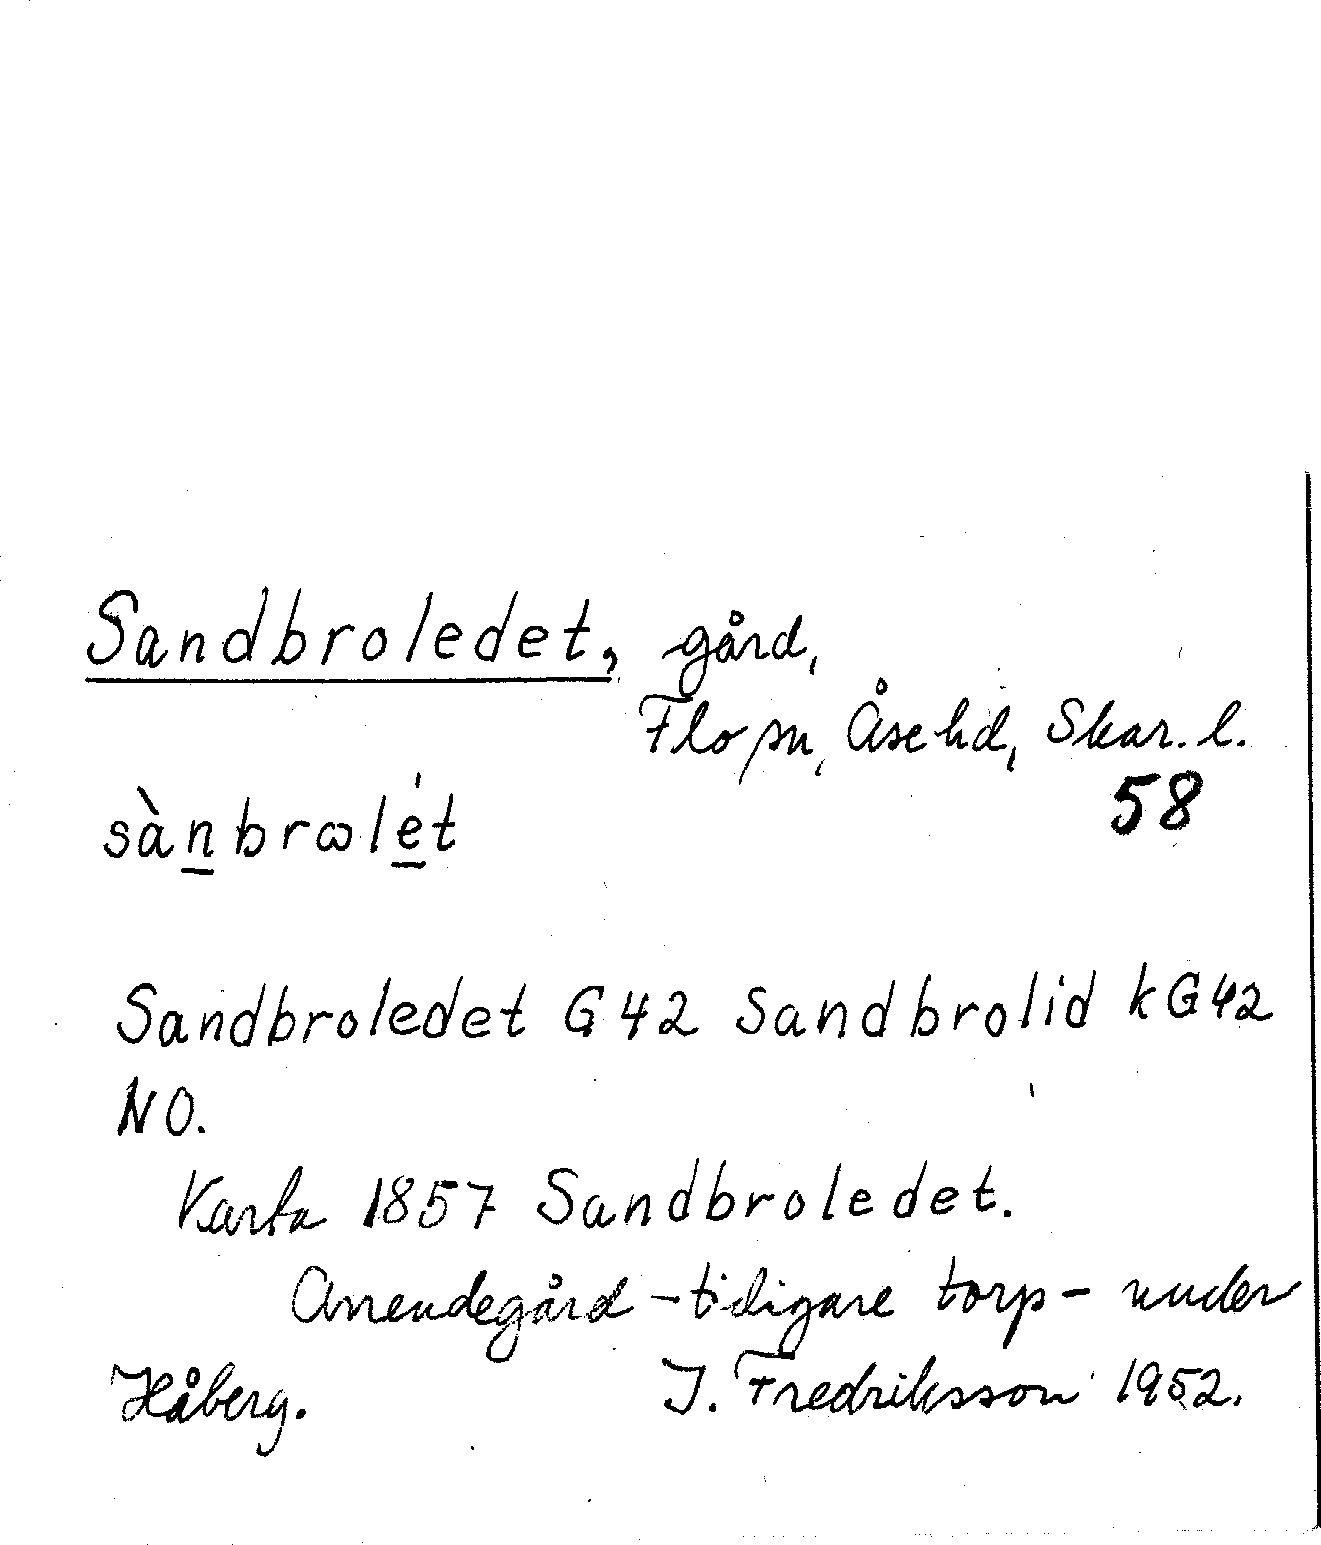 Sandbroledet, gård,
Flo sn, Åse hd, Skar. l.
58
sànbrωlét
Sandbroledet G42 Sandbrolid kG42
NO.
Karta 1857 Sandbroledet.
Arrendegård - tidigare torp - under
Håberg. I. Fredriksson 1952.